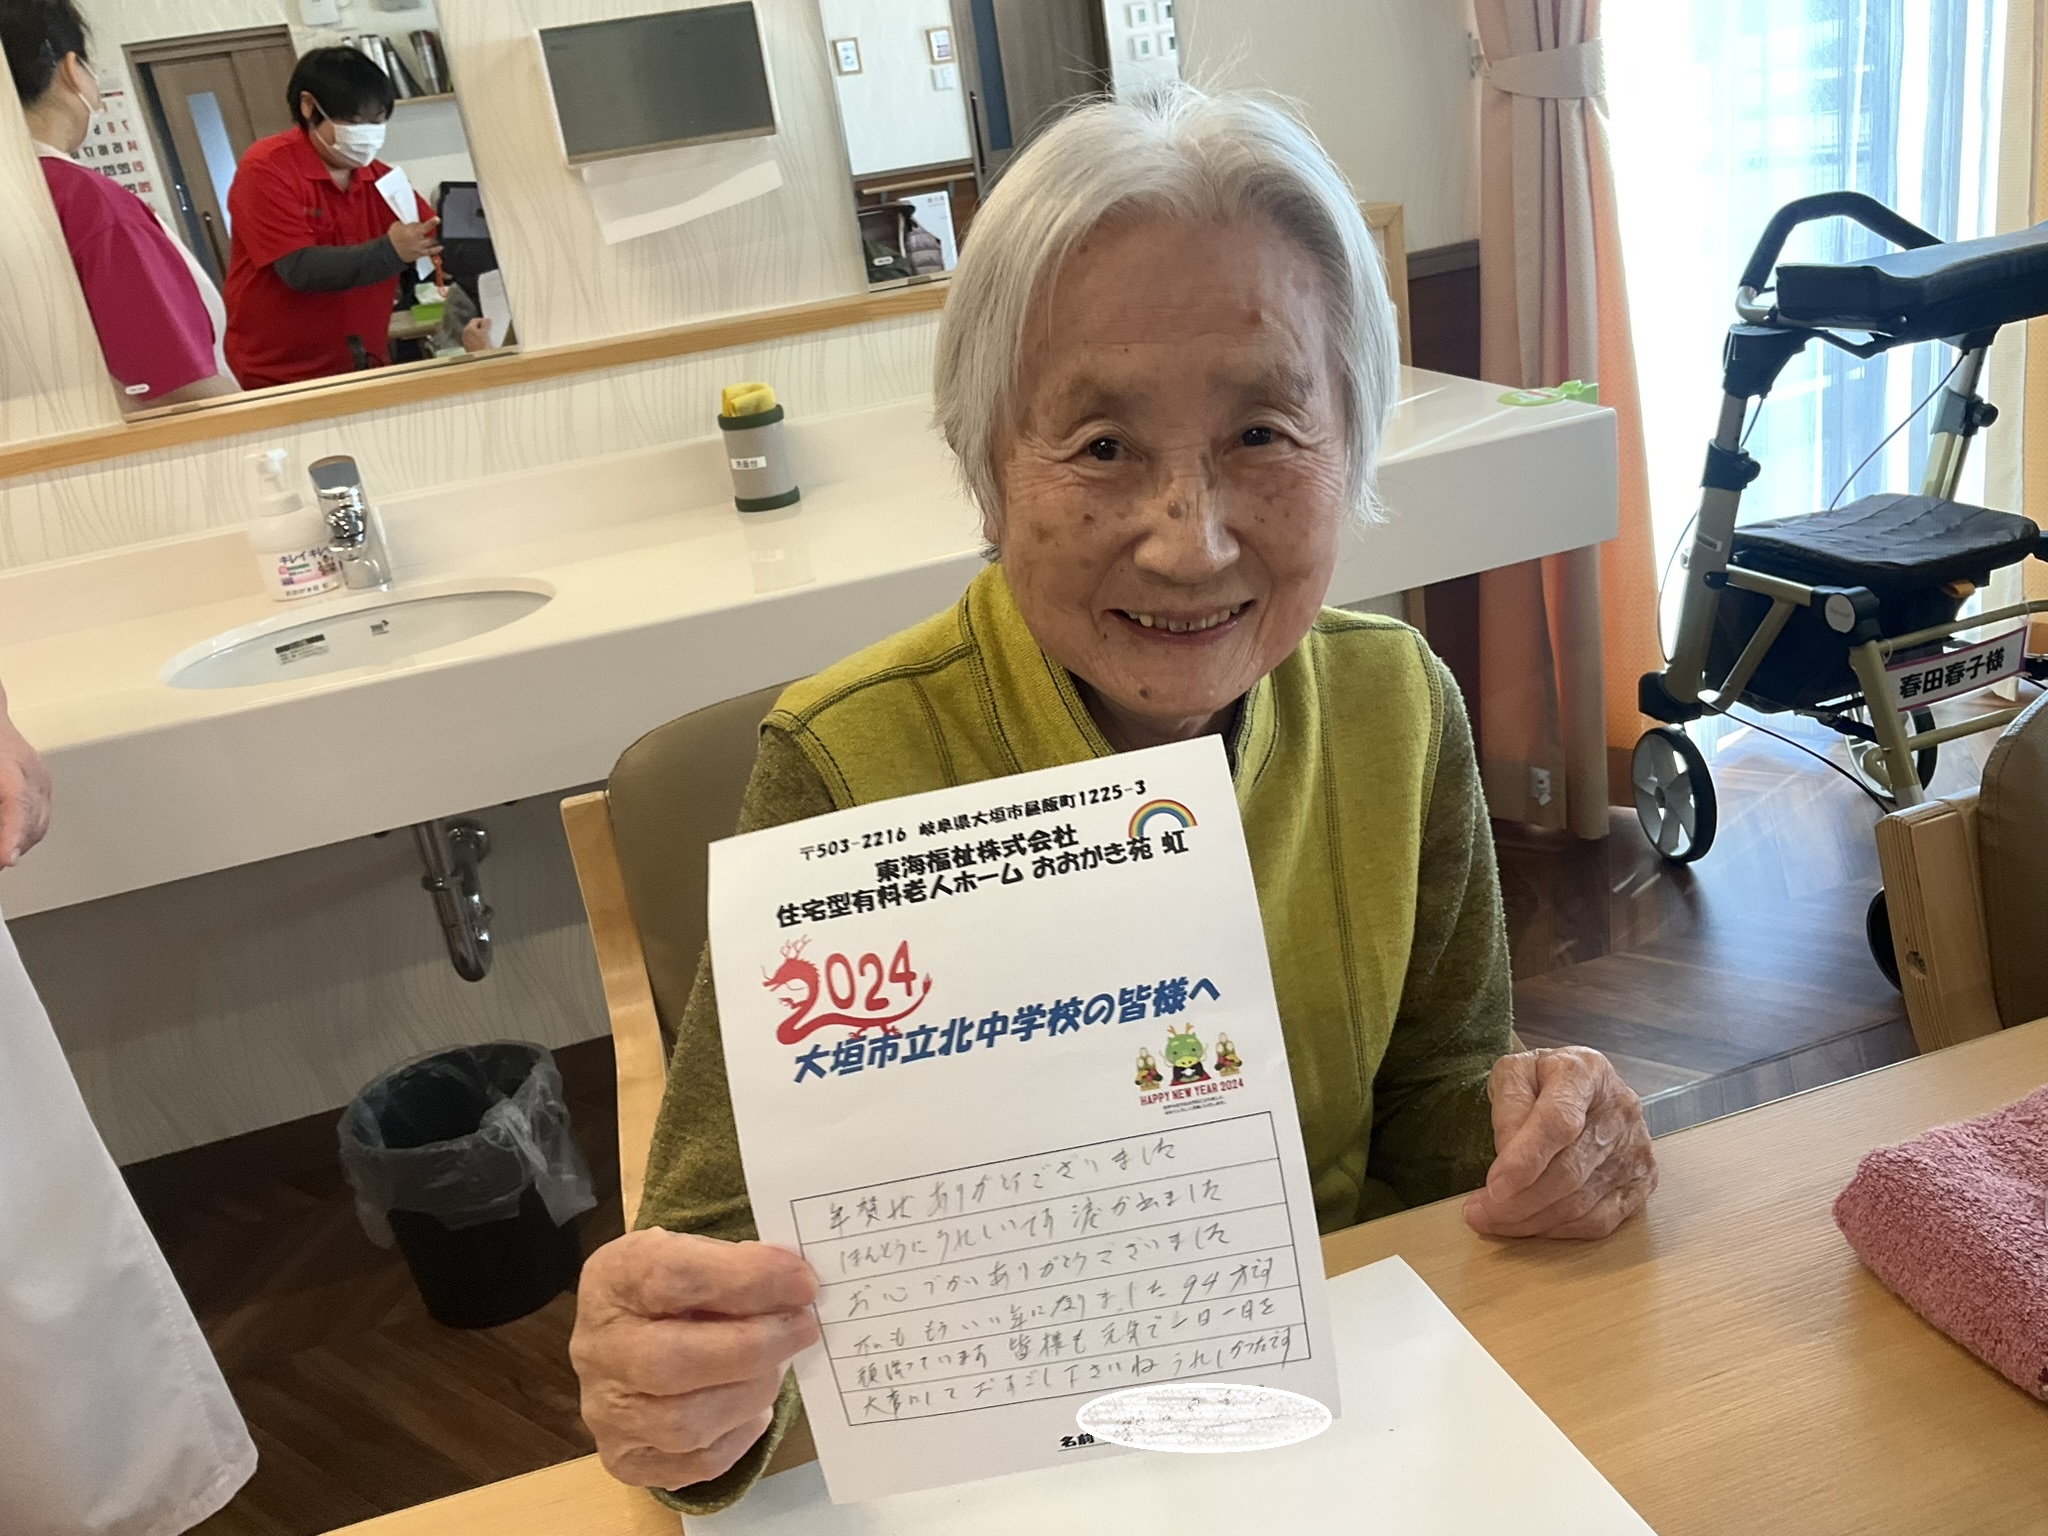 〒503-2216 岐阜県大垣市昼飯町1225-3
東海福祉株式会社
住宅型有料老人ホーム おおがき苑 虹
2024
大垣市立北中学校の皆様へ
HAPPY NEW YEAR 2024
年賀状ありがとうございました
ほんとうにうれしいです 涙が出ました
お心づかいありがとうございました
私ももういい年になりました 94才です
頑張っています 皆様も元気で一日一日を
大事にしておすごし下さいね うれしかったです
名前
春田春子様
キレイキレイ
洗面台